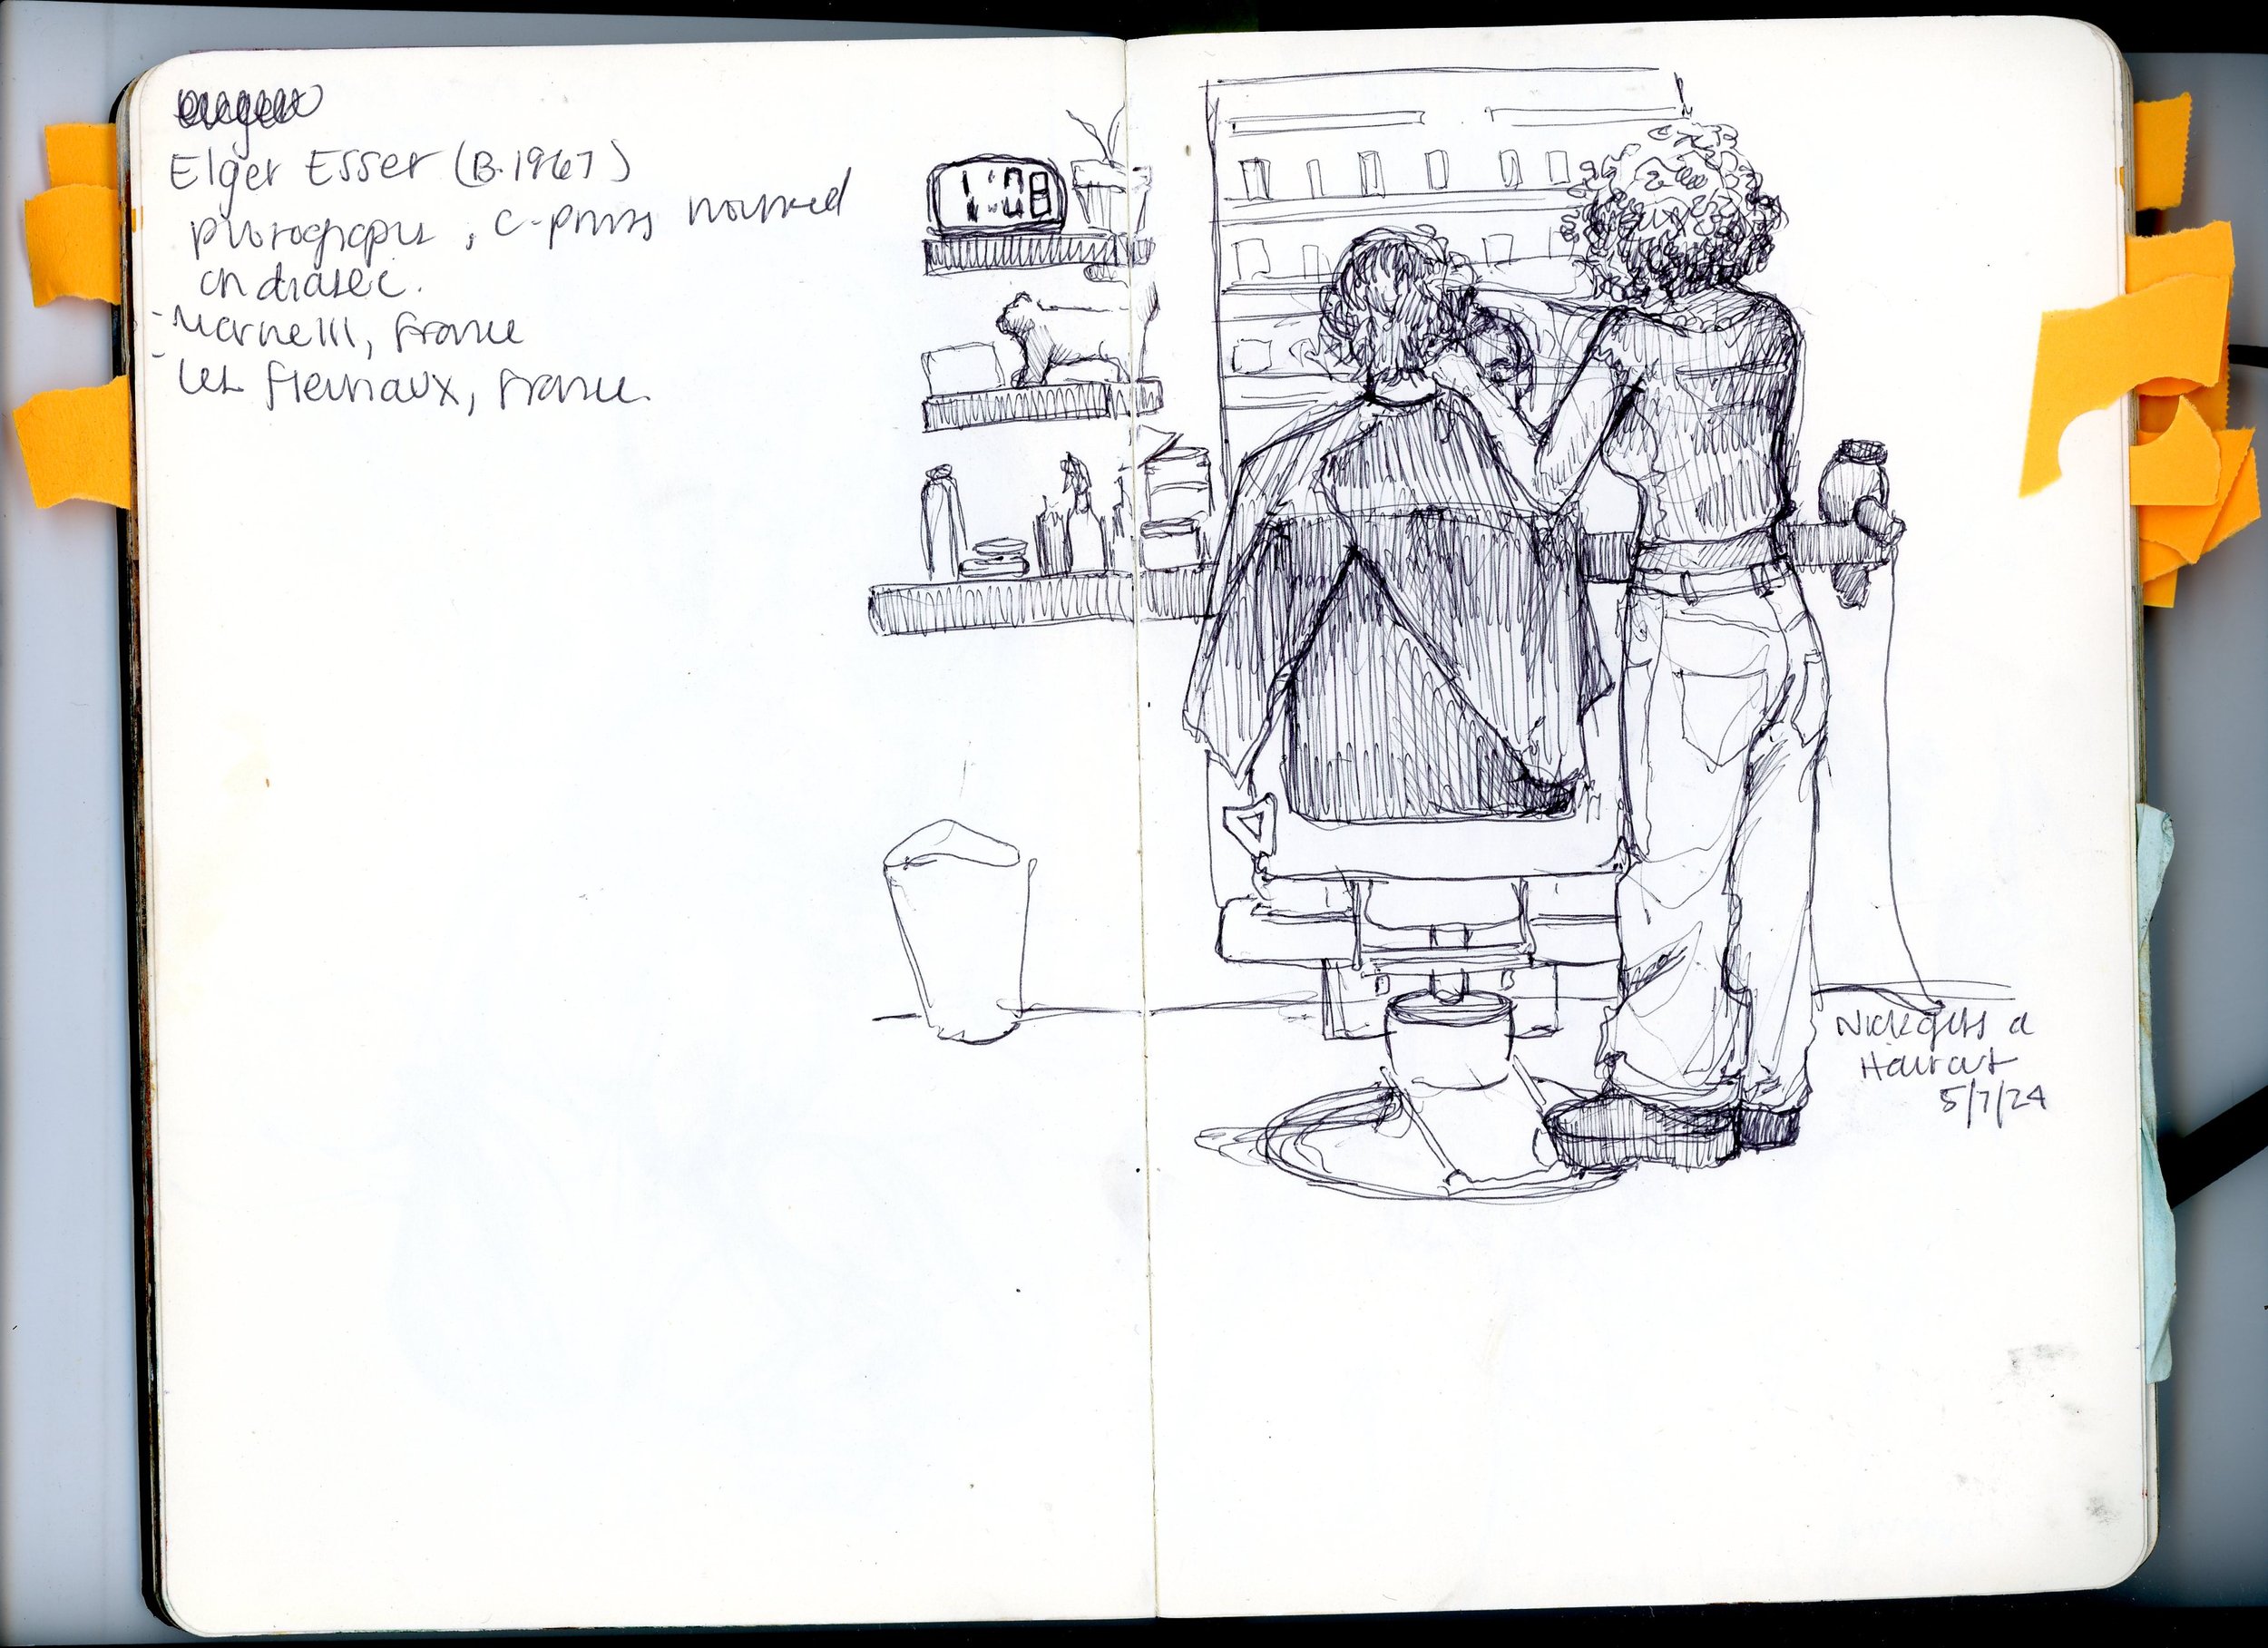 Elger Esser (B.1967)
photographer, c-prints mounted
on diasec.
- Marne III, France
- Les Fleuriaux, France.
1:08
Nick gets a
Haircut
5/7/24